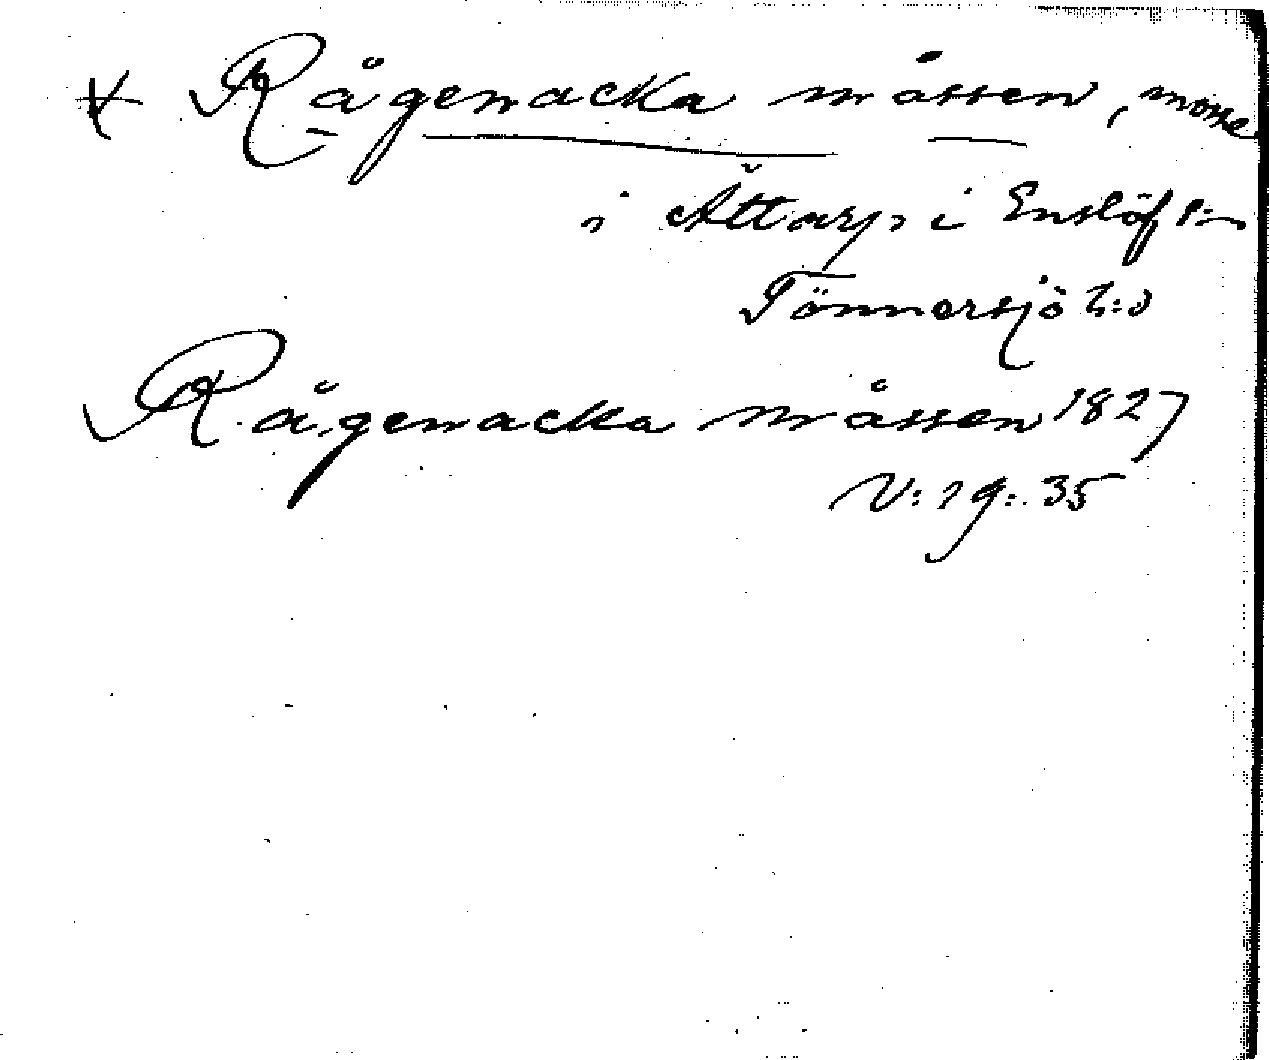 Rågenacka måssen, mosse
i Åttarp i Enslöf s:n
Tönnersjö h:d
Rågenacka måssen 1827
V: 19: 35